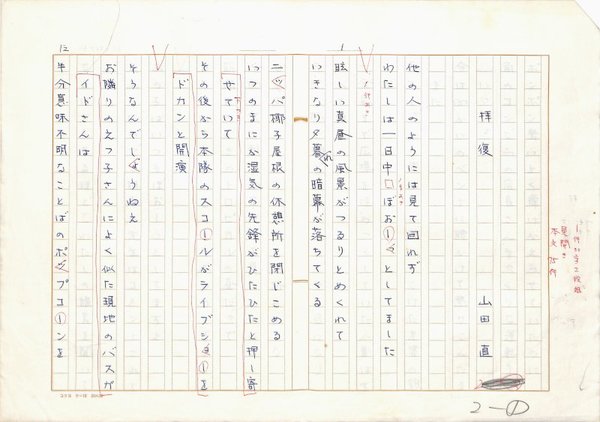 拝復
山田直
他の人のようには見て回れず
わたしは一日中ぼおーっとしてました
眩しい真昼の風景がつるりとめくれて
いきなり夕暮れの暗幕が落ちてくる
ニッパ椰子屋根の休憩所を閉じこめる
いつのまにか湿気の先鋒がひたひたと押し寄
せていて
その後から本隊のスコールがライブショーを
ドカンと開演
そうなんでしょうねえ
お隣りのえつ子さんによく似た現地のバスガ
イドさんは
半分意味不明なことばのポップコーンを
見開き
2-①
12
1